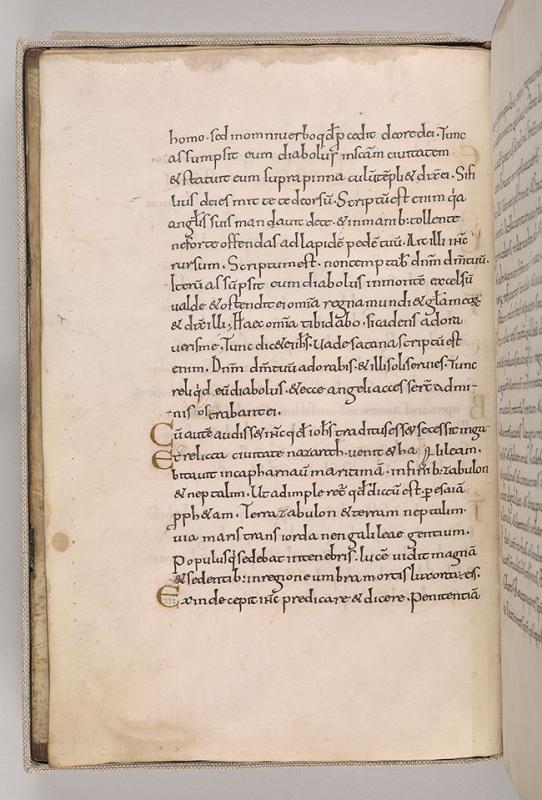 homo. sed in omni uerbo qđ p cedit deore dei. Tunc
assumpsit eum diabolus insc̄am ciuitatem
& statuit eum supra pinna culū tēpli & dix̄ ei. Si fi
lius dei es mitte te deorsū. Scriptū est enim q̄a
angl̄is suis mandauit dete. & inmanib: tollent te
neforte offendas ad lapidē pedē tuū. Ait illi ih̄c
rursum. Scriptum est. non temptab̄ dnm̄ dm̄ tuū.
Iterū assūpsit eum diabolus inmontē excelsū
ualde & ostendit ei om̄ia regna mundi & gl̄am
& dix̄ illi; Haec om̄ia tibi dabo. si cadens adora
ueris me. Tunc dic& ei ih̄s. Uade satana scriptū est
enim. Dnm̄ dm̄ tuū adorabis. & illi soli seruies. Tunc
reliq̄d eū diabolus. & ecce angeli accesser̄t & admi-
nistrabant ei.
Cū autē audiss& ih̄c qđ ioh̄s traditus ess& secessit inga
Et relicta ciuitate nazareth. uenit & ha lileam.
bitauit incapharnaū maritimā. infinib: zabulon
& neptalim. Ut adimpleret̄ qđ dictū est. p esaiā
pph&am. Terra zabulon & terram neptalim.
uia maris trans iordanen galileae gentium.
Populus q̄ sedebat intenebris. lucē uidit magnā
& sedentib: inregione umbra mortis lux orta. ē eis.
Exinde cepit ih̄c predicare & dicere. Penitentiā